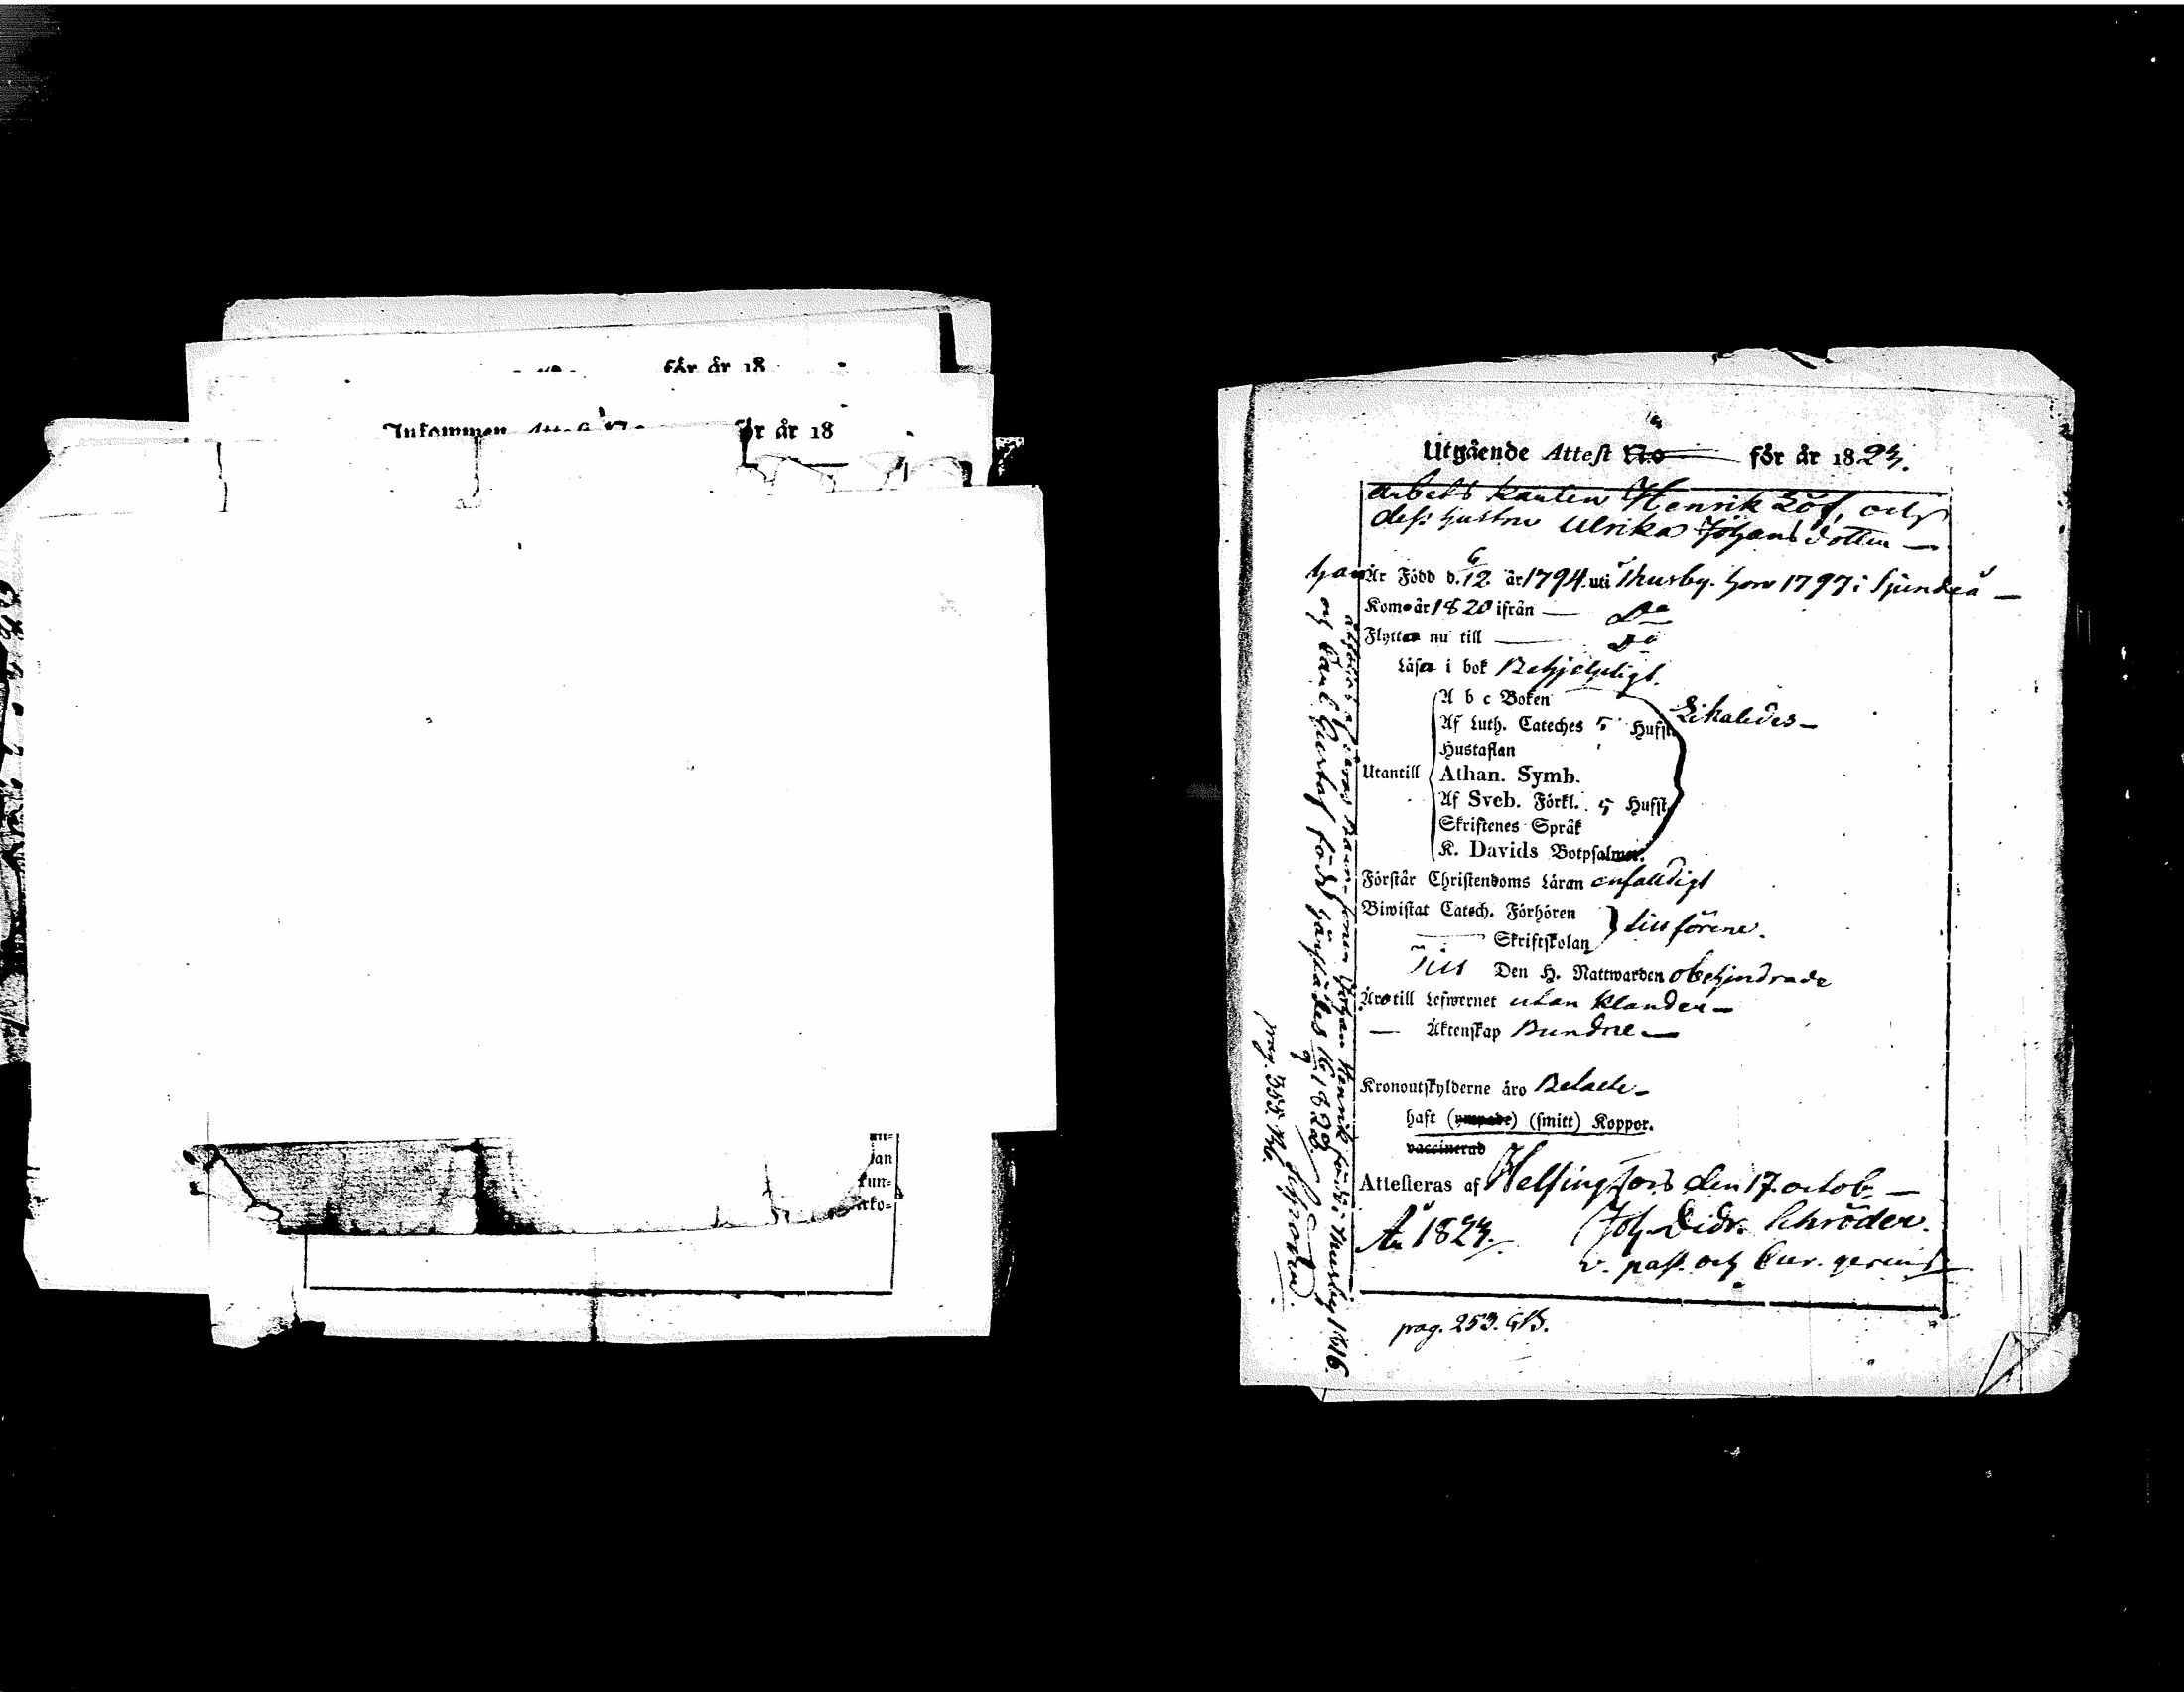 för år 18
Inkommen Attest No för år 18
un=
jan
kun=
rko=
Utgående Attest No för år 1823.
arbets karlen Henrik Löf, och
dess hustru Ulrika Johans dotter —
han Är Född d. 6/12 år 1794 uti Thusby. hon 1797 i Sjundeå —
Kom år 1820 ifrån — Do
Flytta nu till — Do
Läsa i bok Behjelpeligt.
A b c Boken
Af Luth. Cateches 5 Hufst. Likaledes —
Hustaflan
Utantill Athan. Symb.
Af Sveb. Förkl. 5 Hufst.
Skriftenes Språk
K. Davids Botpsalmer.
Förstår Christendoms Läran enfalldigt
Biwistat Catech. Förhören
Skriftskolan
Den H. Nattwarden obehindrade
Äro till Lefwernet utan klander —
— Äktenskap Bundne —
Kronoutskylderne äro Betaelt —
haft (ympade) (smitt) Koppor.
vaccinerad
Attesteras af Helsingfors den 17. octob. —
År 1823. Joh. Didr. Schröder.
v. past. och
pag. 253. GB.
Johan Henrik född i Thusby 1816.
och Carl Gustaf född härstädes
pag. 355.